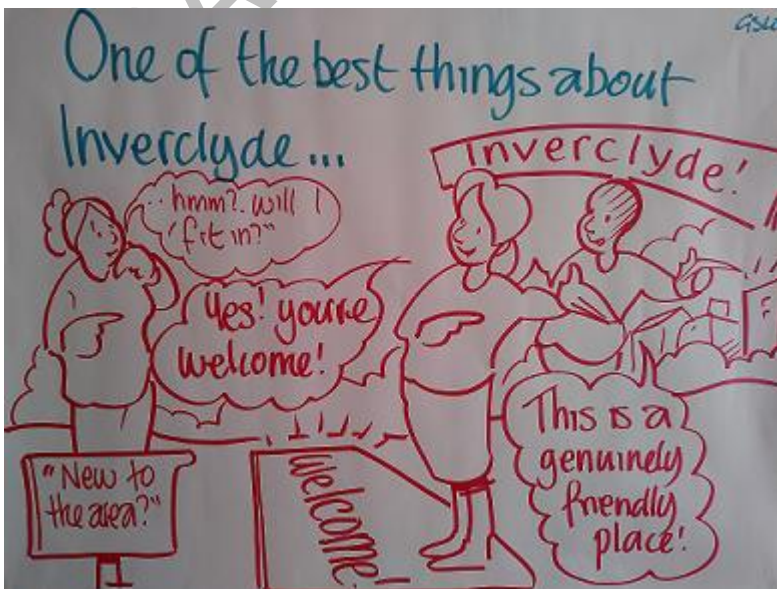 One of the best things about
Inverclyde...
Inverclyde!
.. hmm?. will I
'fit in?"
Yes! you're
welcome!
"New to
the area?"
Welcome!
This is a
genuinely
friendly
place!